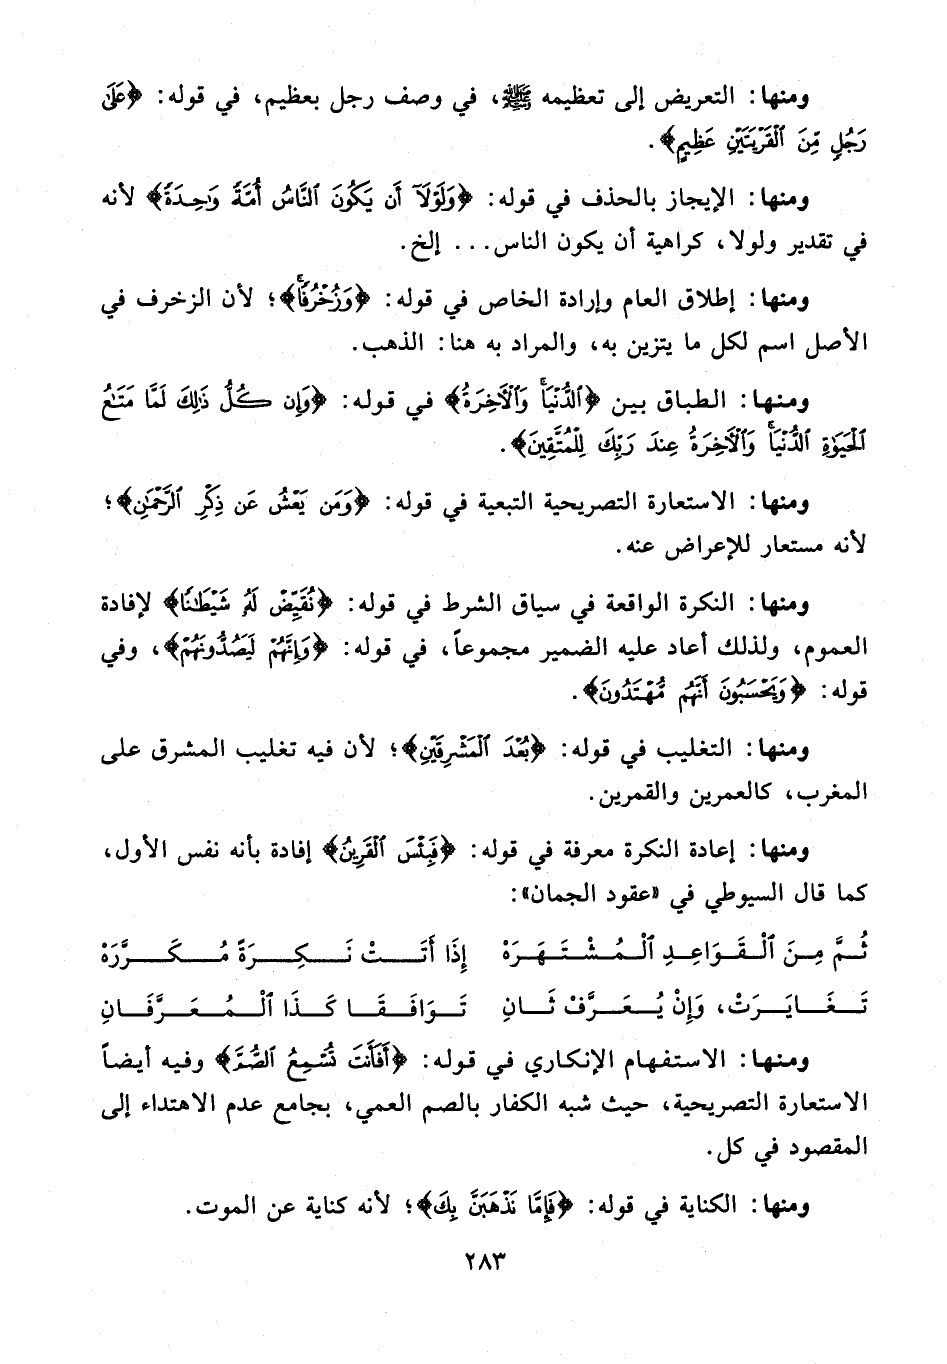 ومنها: التعريض إلى تعظيمه ﷺ، في وصف رجل بعظيم، في قوله: ﴿عَلَىٰ
رَجُلٍ مِّنَ ٱلْقَرْيَتَيْنِ عَظِيمٍ﴾.
ومنها: الإيجاز بالحذف في قوله: ﴿وَلَوْلَآ أَن يَكُونَ ٱلنَّاسُ أُمَّةً وَٰحِدَةً﴾ لأنه
في تقدير ولولا، كراهية أن يكون الناس... إلخ.
ومنها: إطلاق العام وإرادة الخاص في قوله: ﴿وَزُخْرُفًاۚ﴾؛ لأن الزخرف في
الأصل اسم لكل ما يتزين به، والمراد به هنا: الذهب.
ومنها: الطباق بين ﴿ٱلدُّنْيَاۚ وَٱلْأَخِرَةُ﴾ في قوله: ﴿وَإِن كُلُّ ذَٰلِكَ لَمَّا مَتَٰعُ
ٱلْحَيَوٰةِ ٱلدُّنْيَاۚ وَٱلْأَخِرَةُ عِندَ رَبِّكَ لِلْمُتَّقِينَ﴾.
ومنها: الاستعارة التصريحية التبعية في قوله: ﴿وَمَن يَعْشُ عَن ذِكْرِ ٱلرَّحْمَٰنِ﴾؛
لأنه مستعار للإعراض عنه.
ومنها: النكرة الواقعة في سياق الشرط في قوله: ﴿نُقَيِّضْ لَهُۥ شَيْطَٰنًا﴾ لإفادة
العموم، ولذلك أعاد عليه الضمير مجموعاً، في قوله: ﴿وَإِنَّهُمْ لَيَصُدُّونَهُمْ﴾، وفي
قوله: ﴿وَيَحْسَبُونَ أَنَّهُم مُّهْتَدُونَ﴾.
ومنها: التغليب في قوله: ﴿بُعْدَ ٱلْمَشْرِقَيْنِ﴾؛ لأن فيه تغليب المشرق على
المغرب، كالعمرين والقمرين.
ومنها: إعادة النكرة معرفة في قوله: ﴿فَبِئْسَ ٱلْقَرِينُ﴾ إفادة بأنه نفس الأول،
كما قال السيوطي في «عقود الجمان»:
ثُمَّ مِنَ ٱلْقَوَاعِدِ ٱلْمُشْتَهَرَهْ إِذَا أَتَتْ نَكِرَةً مُكَرَّرَهْ
تَغَايَرَتْ، وَإِنْ يُعَرَّفْ ثَانِ تَوَافَقَا كَذَا ٱلْمُعَرَّفَانِ
ومنها: الاستفهام الإنكاري في قوله: ﴿أَفَأَنتَ تُسْمِعُ ٱلصُّمَّ﴾ وفيه أيضاً
الاستعارة التصريحية، حيث شبه الكفار بالصم العمي، بجامع عدم الاهتداء إلى
المقصود في كل.
ومنها: الكناية في قوله: ﴿فَإِمَّا نَذْهَبَنَّ بِكَ﴾؛ لأنه كناية عن الموت.
٢٨٣